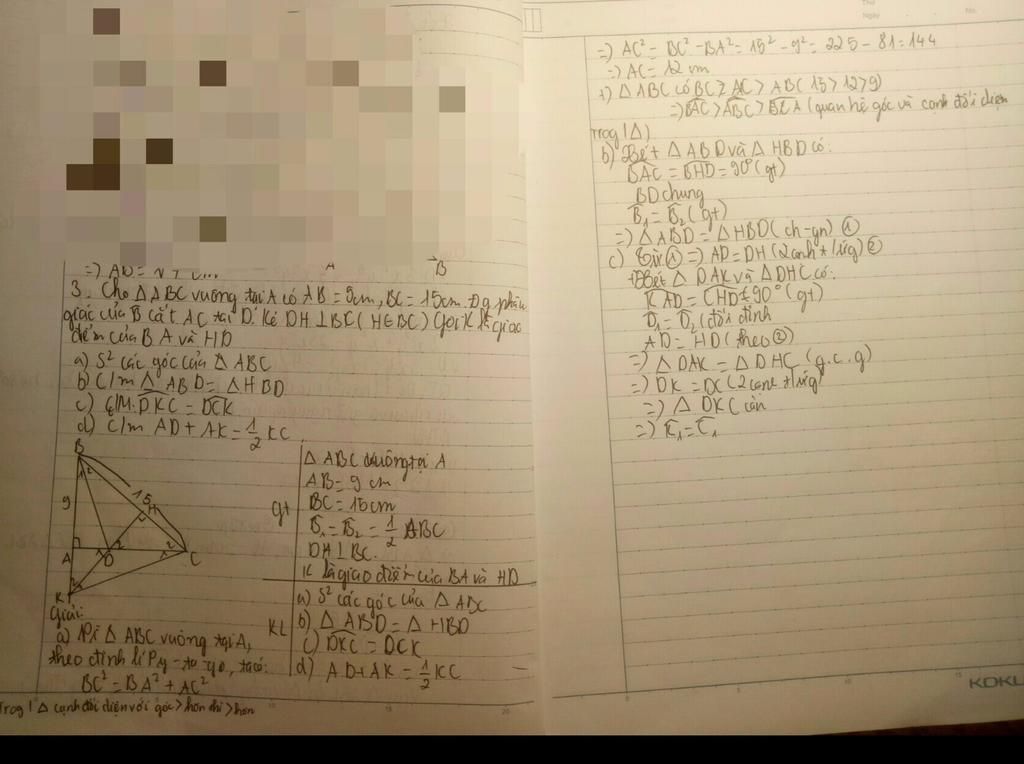 =) AD = √
A
B
3. Cho Δ ABC vuông tại A có AB = 9cm, BC = 15cm. Đg phân
giác của B cắt AC tại D. Kẻ DH ⊥ BC (H∈BC) Gọi K là giao
điểm của BA và HD
a) S² các góc của Δ ABC
b) C/m Δ ABD = Δ HBD
c) C/M: DKC = DCK
d) C/m AD + AK = 1/2 KC
B
1 2
9
15
H
A
1 D 2
1 2
C
K
gt
Δ ABC vuông tại A
AB = 9 cm
BC = 15cm
B₁ = B₂ = 1/2 ABC
DH ⊥ BC.
K là giao điểm của BA và HD
KL
a) S² các góc của Δ ABC
b) Δ ABD = Δ HBD
c) DKC = DCK
d) AD + AK = 1/2 KC
Giải:
a) Vì Δ ABC vuông tại A,
theo định lí Py-ta-go, ta có:
BC² = BA² + AC²
Trog 1 Δ cạnh đối diện với góc > hơn thì > hơn
=) AC² = BC² - BA² = 15² - 9² = 225 - 81 = 144
=) AC = 12 cm
+) Δ ABC có BC > AC > AB ( 15 > 12 > 9)
=) BAC > ABC > BCA (quan hệ góc và cạnh đối diện
trog 1 Δ)
b) Xét Δ ABD và Δ HBD có:
BAC = BHD = 90° (gt)
BD chung
B₁ = B₂ ( gt)
=) Δ ABD = Δ HBD ( ch-gn) ①
c) Từ ① =) AD = DH (2 cạnh t/ứg) ②
Xét Δ DAK và Δ DHC có:
KAD = CHD = 90° (gt)
D₁ = D₂ (đối đỉnh
AD = HD (theo ②)
=) Δ DAK = Δ DHC (g.c.g)
=) DK = DC (2 cạnh t/ứg)
=) Δ DKC cân
=) K₁ = C₁
KOKU